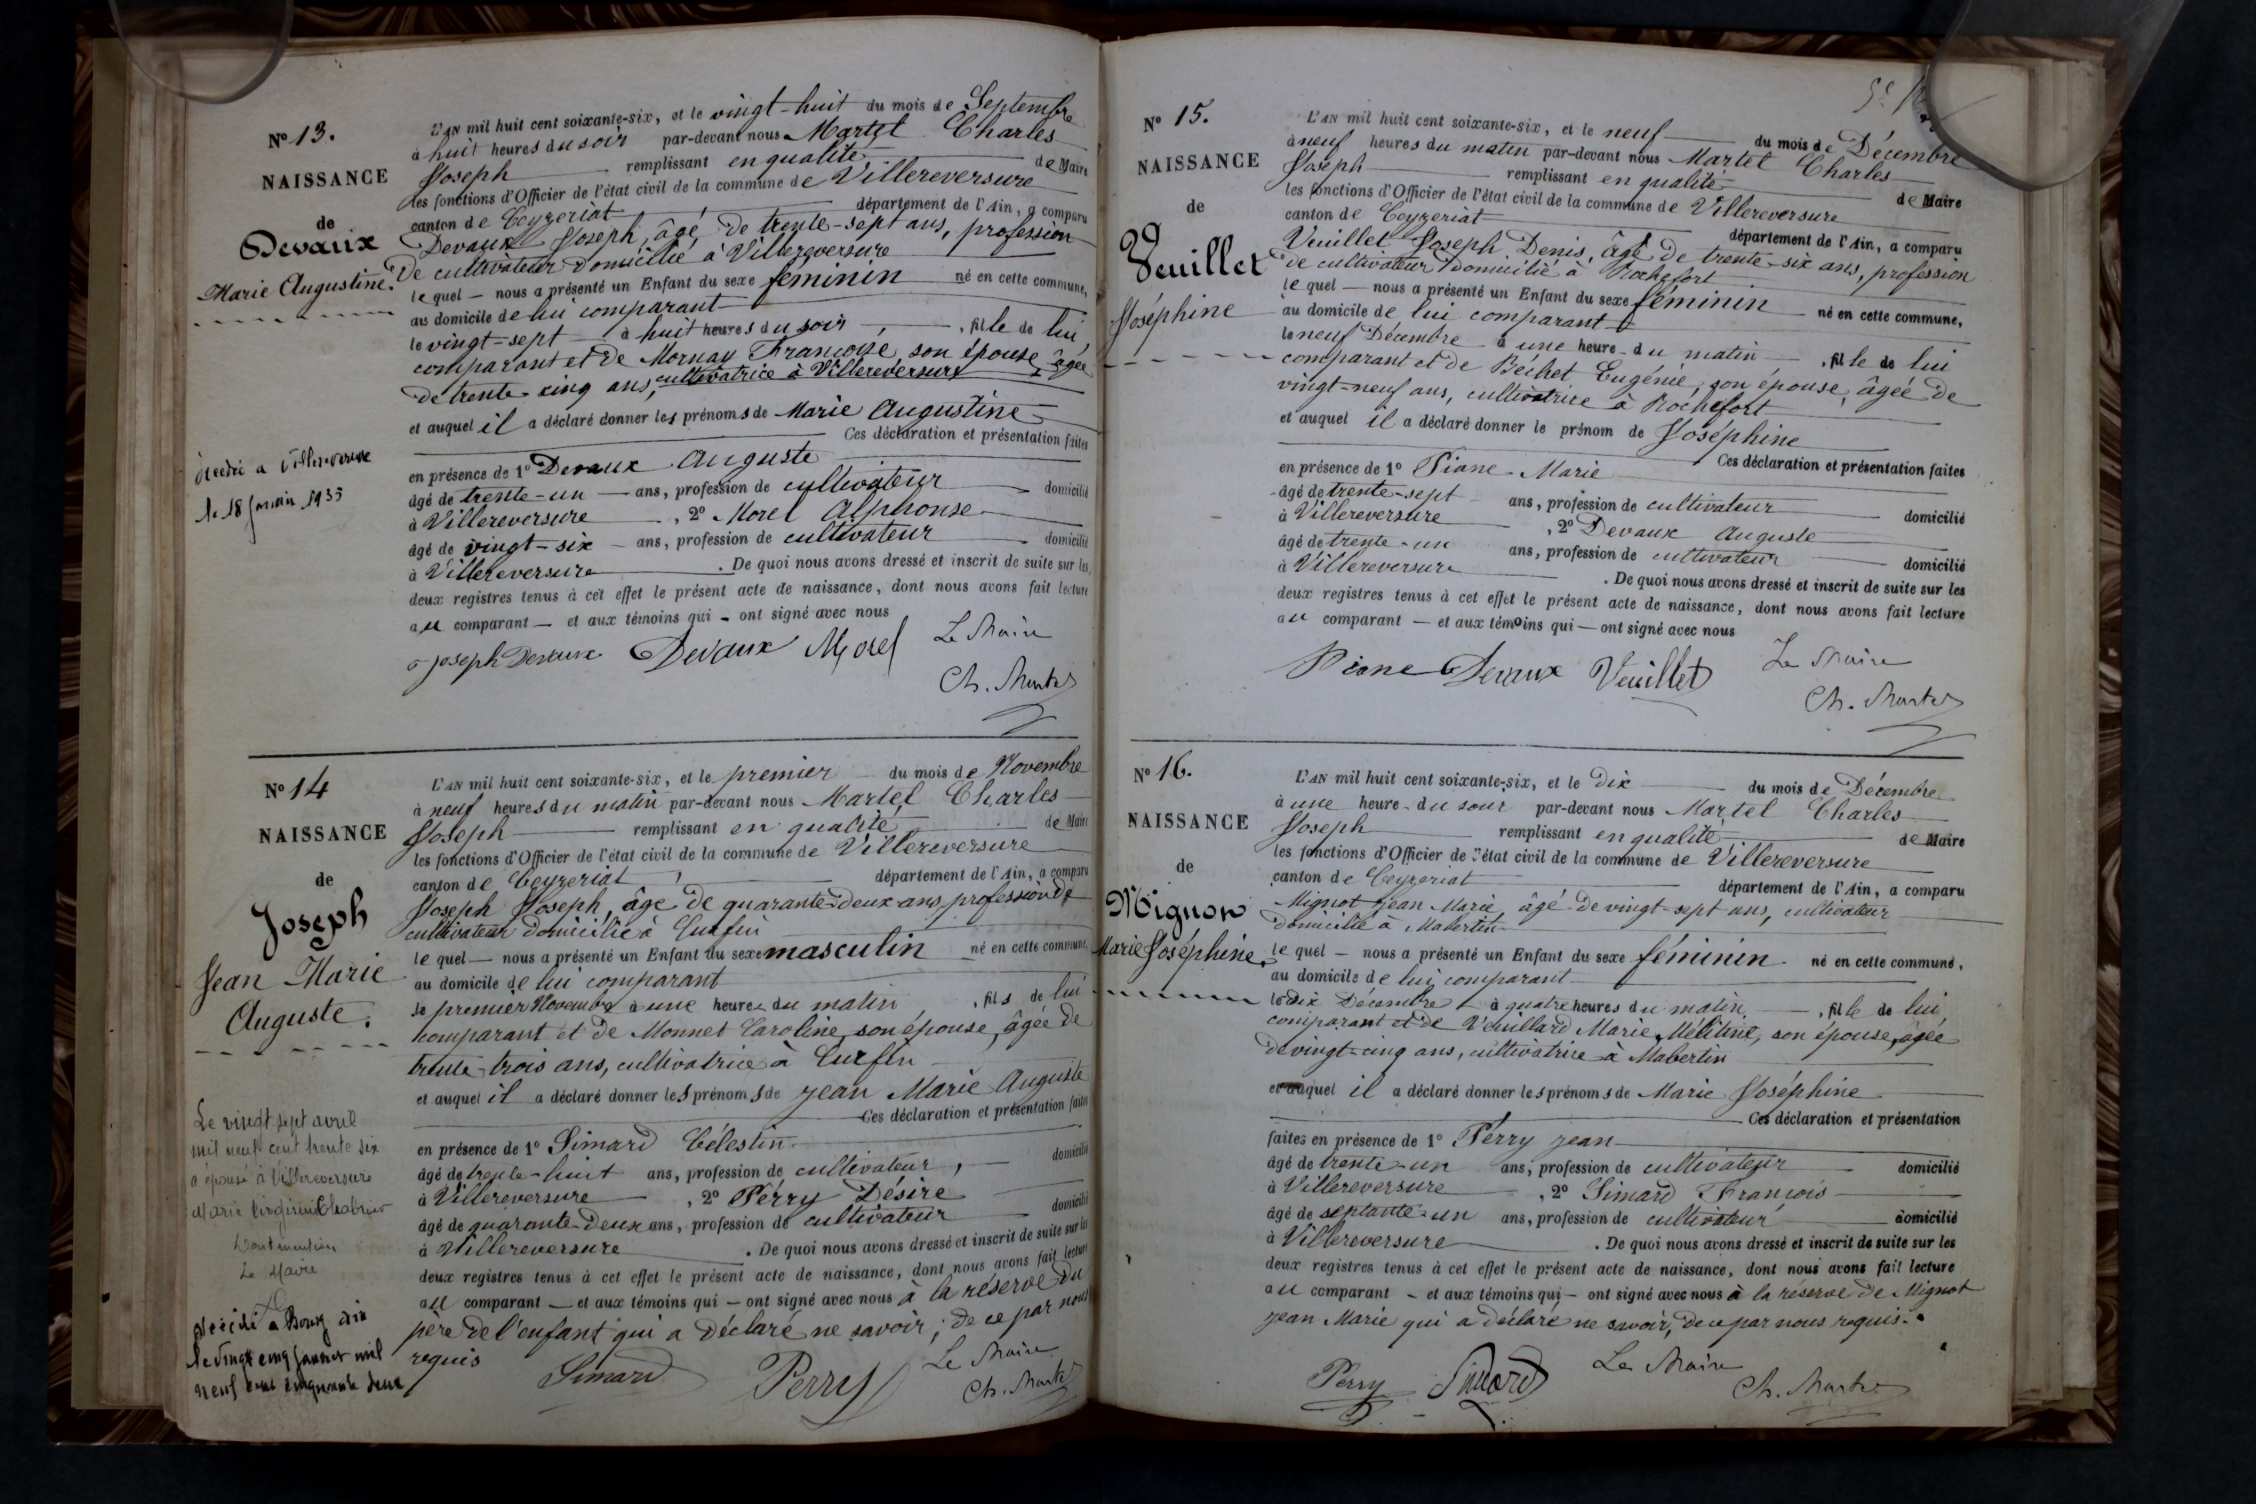 Nº 13.
NAISSANCE
de
Devaux
Marie Augustine.
L'AN mil huit cent soixante-six, et le vingt-huit du mois de Septembre
à huit heures du soir par-devant nous Martel Charles
Joseph remplissant en qualité de Maire
les fonctions d'Officier de l'état civil de la commune de Villereversure
canton de Ceyzeriat, département de l'Ain, a comparu
Devaux Joseph, âgé de trente-sept ans, profession
de cultivateur domicilié à Villereversure
le quel — nous a présenté un Enfant du sexe féminin né en cette commune,
au domicile de lui comparant
le vingt-sept à huit heures du soir, fille de lui
comparant et de Mornay Françoise, son épouse, âgée
de trente cinq ans, cultivatrice à Villereversure
et auquel il a déclaré donner les prénoms de Marie Augustine
Ces déclaration et présentation faites
en présence de 1º Devaux Auguste
âgé de trente-un ans, profession de cultivateur domicilié
à Villereversure, 2º Morel Alphonse
âgé de vingt-six ans, profession de cultivateur domicilié
à Villereversure. De quoi nous avons dressé et inscrit de suite sur les
deux registres tenus à cet effet le présent acte de naissance, dont nous avons fait lecture
au comparant — et aux témoins qui — ont signé avec nous
joseph Devaux Devaux Morel Le Maire
Ch. Martel
décédée a Villereversure
le 18 janvier 1935
Nº 14
NAISSANCE
de
Joseph
Jean Marie
Auguste.
L'AN mil huit cent soixante-six, et le premier du mois de Novembre
à neuf heures du matin par-devant nous Martel Charles
Joseph remplissant en qualité de Maire
les fonctions d'Officier de l'état civil de la commune de Villereversure
canton de Ceyzeriat, département de l'Ain, a comparu
Joseph Joseph, âgé de quarante-deux ans profession de
cultivateur domicilié à Curfin
le quel — nous a présenté un Enfant du sexe masculin né en cette commune,
au domicile de lui comparant
le premier Novembre à une heure du matin, fils de lui
comparant et de Monnet Caroline, son épouse, âgée de
trente-trois ans, cultivatrice à Curfin
et auquel il a déclaré donner les prénoms de jean Marie Auguste
Ces déclaration et présentation faites
en présence de 1º Simard Célestin
âgé de trente-huit ans, profession de cultivateur, domicilié
à Villereversure, 2º Perry Désiré
âgé de quarante-deux ans, profession de cultivateur domicilié
à Villereversure. De quoi nous avons dressé et inscrit de suite sur les
deux registres tenus à cet effet le présent acte de naissance, dont nous avons fait lecture
au comparant — et aux témoins qui — ont signé avec nous à la réserve du
père de l'enfant qui a déclaré ne savoir; de ce par nous
requis
Simard Perry Le Maire
Ch. Martel
Le vingt sept avril
mil neuf cent trente six
a épousé à Villereversure
Marie Virginie
Dont mention
Le Maire
décédé a Bourg Ain
le vingt cinq janvier mil
neuf cent cinquante deux
Nº 15.
NAISSANCE
de
Veuillet
Joséphine
L'AN mil huit cent soixante-six, et le neuf du mois de Décembre
à neuf heures du matin par-devant nous Martel Charles
Joseph remplissant en qualité de Maire
les fonctions d'Officier de l'état civil de la commune de Villereversure
canton de Ceyzeriat département de l'Ain, a comparu
Veuillet Joseph Denis, âgé de trente-six ans, profession
de cultivateur domicilié à Rochefort
le quel — nous a présenté un Enfant du sexe féminin né en cette commune,
au domicile de lui comparant
le neuf Décembre à une heure du matin, fille de lui
comparant et de Béchet Eugénie, son épouse, âgée de
vingt-neuf ans, cultivatrice à Rochefort
et auquel il a déclaré donner le prénom de Joséphine
Ces déclaration et présentation faites
en présence de 1º Piane Marie
âgé de trente-sept ans, profession de cultivateur domicilié
à Villereversure, 2º Devaux Auguste
âgé de trente-un ans, profession de cultivateur domicilié
à Villereversure. De quoi nous avons dressé et inscrit de suite sur les
deux registres tenus à cet effet le présent acte de naissance, dont nous avons fait lecture
au comparant — et aux témoins qui — ont signé avec nous
Piane Devaux Veuillet Le Maire
Ch. Martel
Nº 16.
NAISSANCE
de
Mignon
Marie Joséphine.
L'AN mil huit cent soixante-six, et le dix du mois de Décembre
à une heure du soir par-devant nous Martel Charles
Joseph remplissant en qualité de Maire
les fonctions d'Officier de l'état civil de la commune de Villereversure
canton de Ceyzeriat département de l'Ain, a comparu
Mignot jean Marie, âgé de vingt-sept ans, cultivateur
domicilié à Mabertin
le quel — nous a présenté un Enfant du sexe féminin né en cette commune,
au domicile de lui comparant
le dix Décembre à quatre heures du matin, fille de lui
comparant et de Veuillard Marie Mélitine, son épouse, âgée
de vingt-cinq ans, cultivatrice à Mabertin
et auquel il a déclaré donner les prénoms de Marie Joséphine
Ces déclaration et présentation
faites en présence de 1º Perry jean
âgé de trente-un ans, profession de cultivateur domicilié
à Villereversure, 2º Simard François
âgé de septante-un ans, profession de cultivateur domicilié
à Villereversure. De quoi nous avons dressé et inscrit de suite sur les
deux registres tenus à cet effet le présent acte de naissance, dont nous avons fait lecture
au comparant — et aux témoins qui — ont signé avec nous à la réserve de Mignot
jean Marie qui a déclaré ne savoir, de ce par nous requis.
Perry Simard Le Maire
Ch. Martel